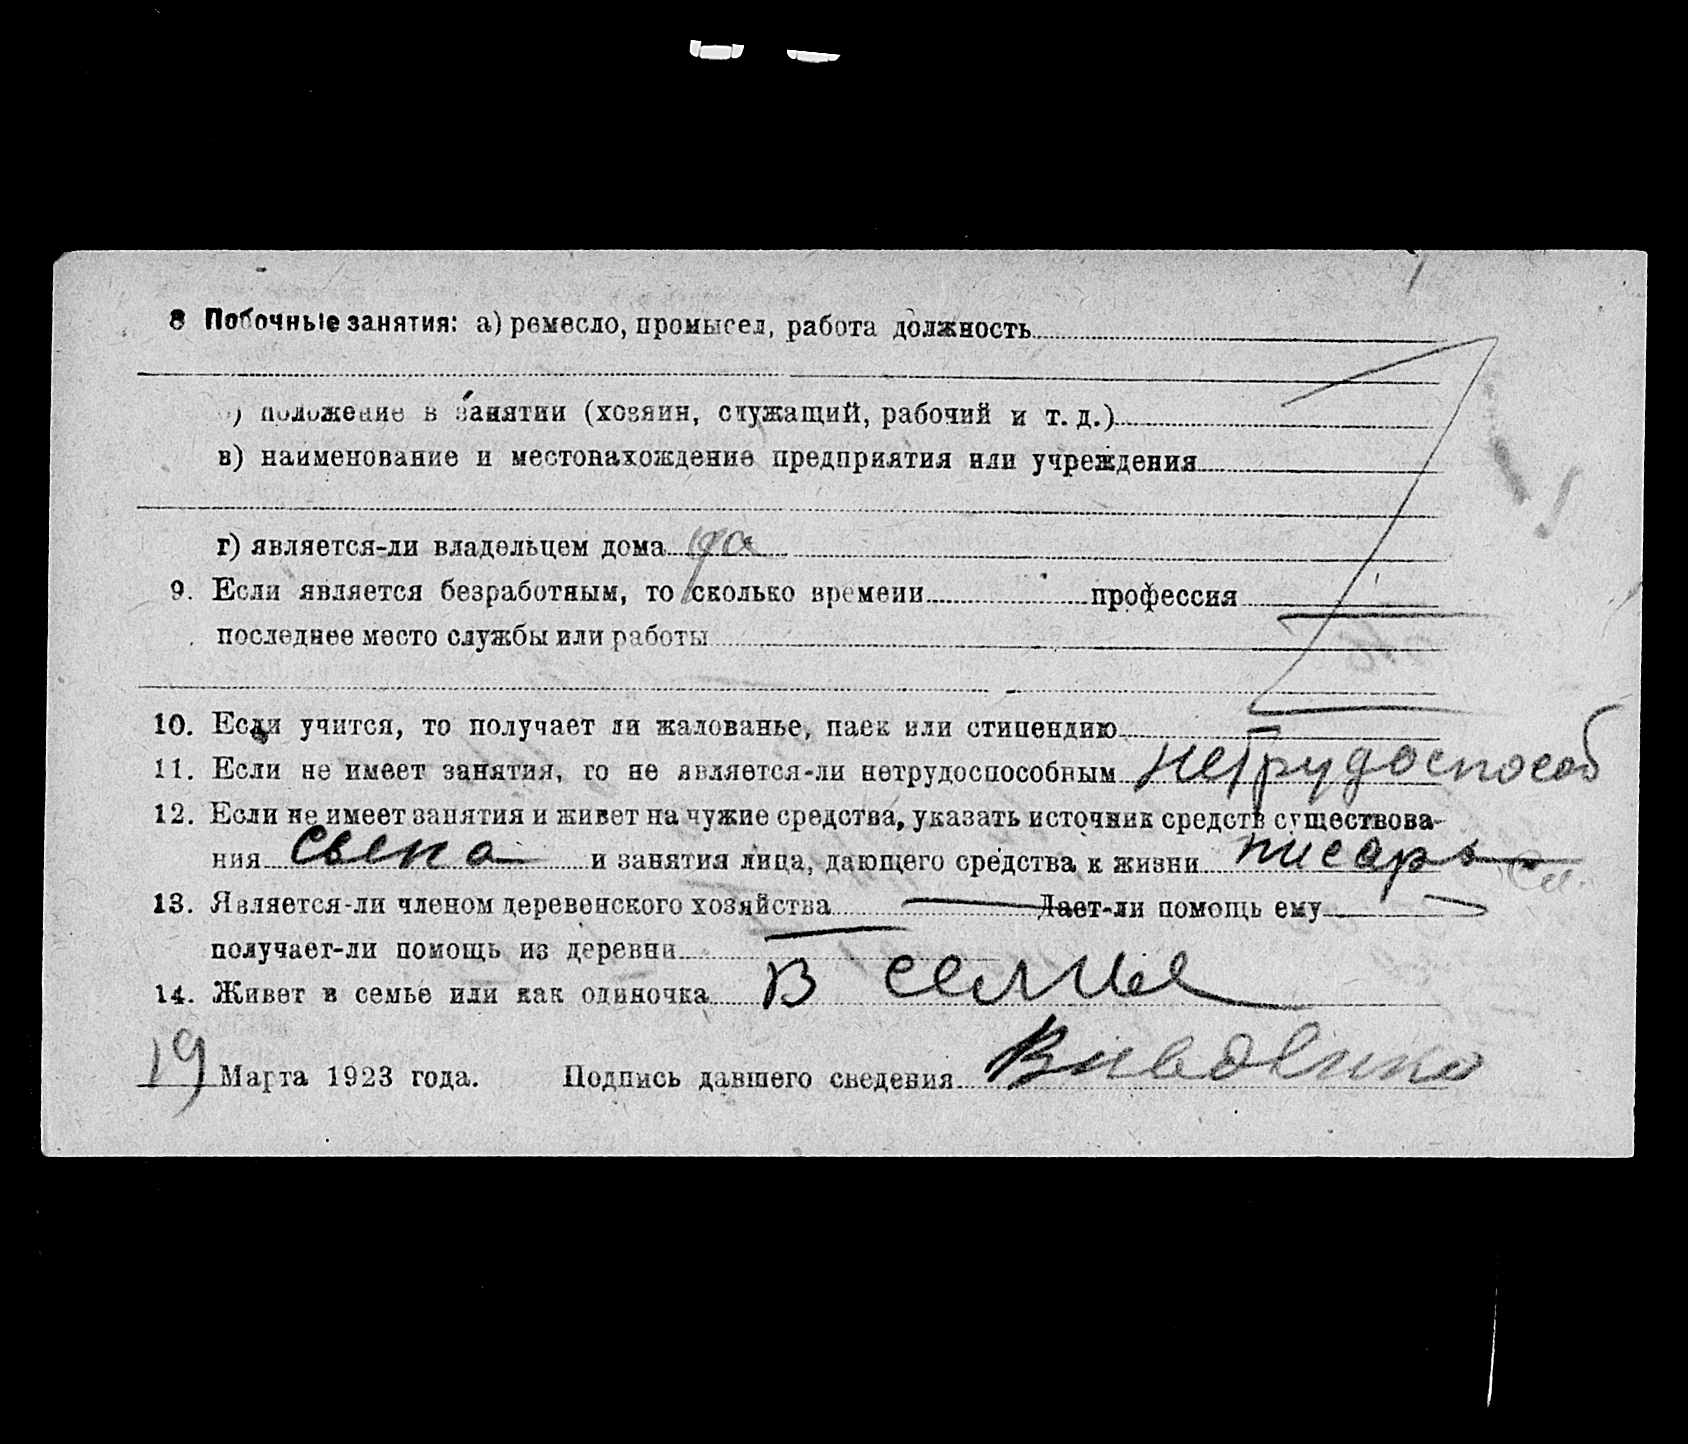 8 Побочные занятия: а) ремесло, промысел, работа должность
) положение в занятии (хозяин, служащий, рабочий и т. д.)
в) наименование и местонахождение предприятия или учреждения
г) является-ли владельцем дома да
9. Если является безработным, то сколько времени профессия
последнее место службы или работы
10. Если учится, то получает ли жалованье, паек или стипендию
11. Если не имеет занятия, то не является-ли нетрудоспособным нетрудоспособ
12. Если не имеет занятия и живет на чужие средства, указать источник средств существова-
ния и занятия лица, дающего средства к жизни писарь
13. Является-ли членом деревенского хозяйства Дает-ли помощь ему
получает-ли помощь из деревни
14. Живет в семье или как одиночка В семье
19 Марта 1923 года. Подпись давшего сведения